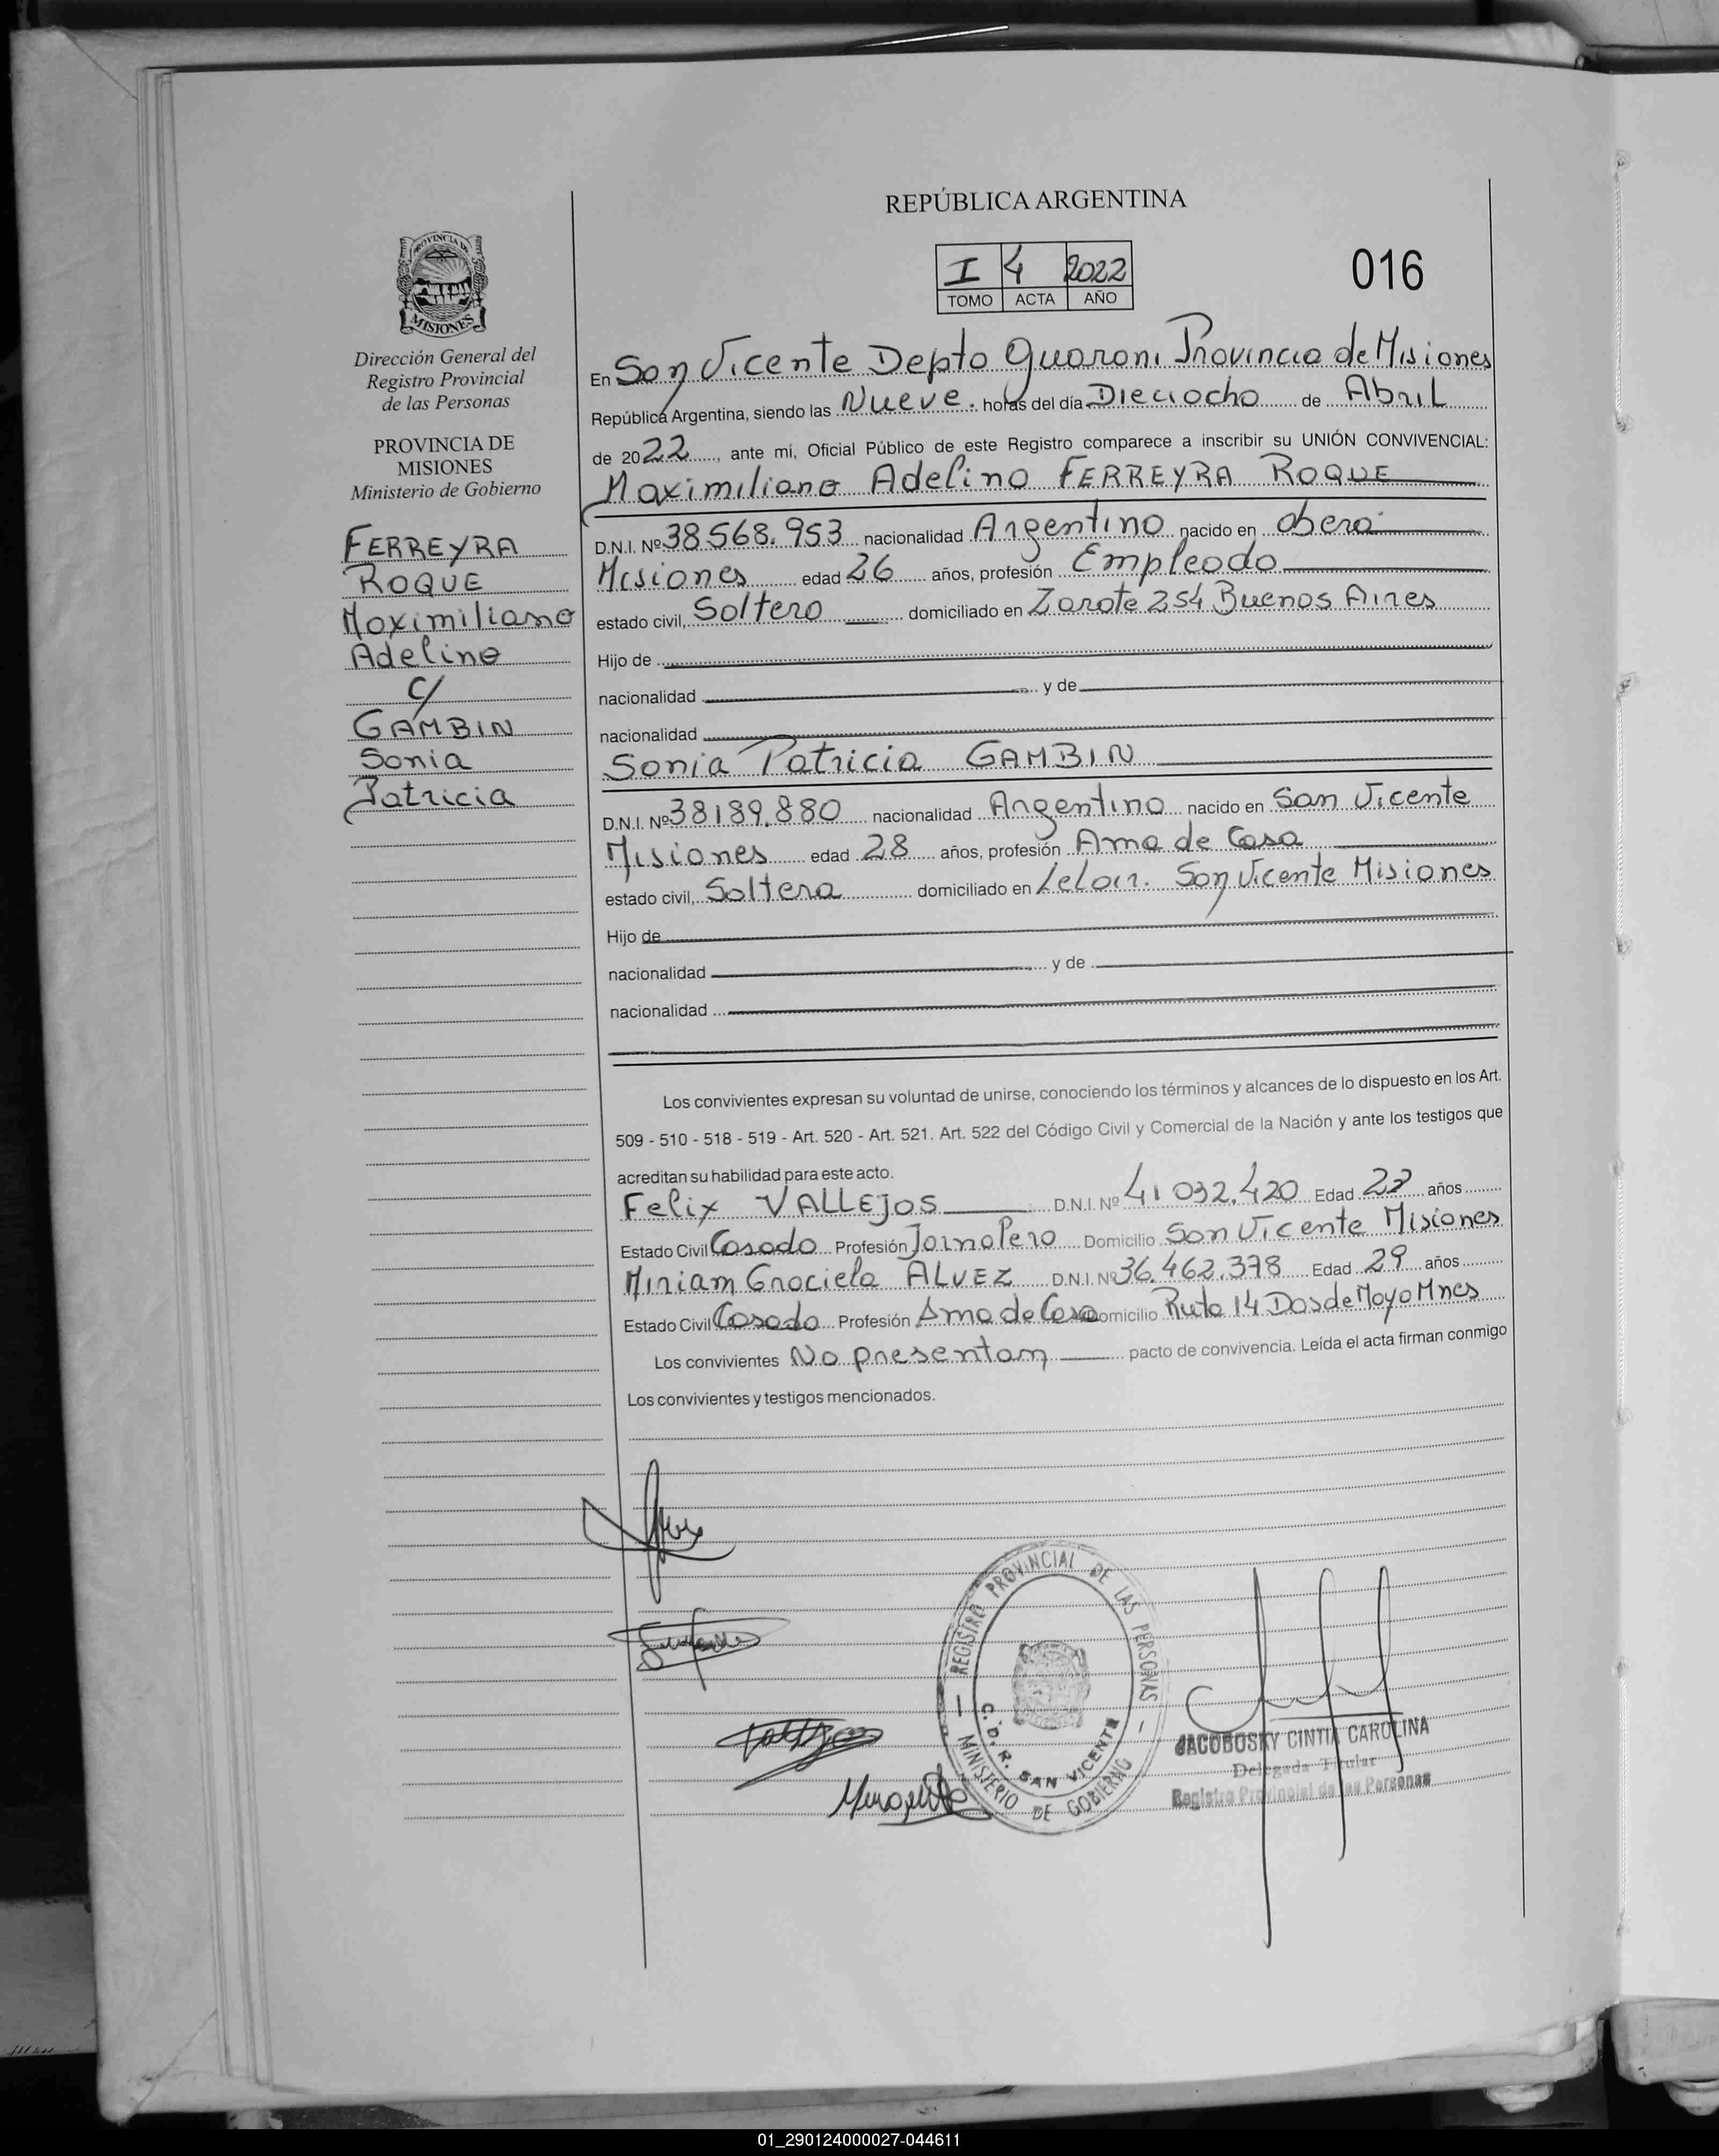 REPÚBLICA ARGENTINA
I 4 2022
TOMO ACTA AÑO
016
PROVINCIA DE
MISIONES
Dirección General del
Registro Provincial
de las Personas
PROVINCIA DE
MISIONES
Ministerio de Gobierno
FERREYRA
ROQUE
Maximiliano
Adelino
c/
GAMBIN
Sonia
Patricia
En San Vicente Depto Guarani Provincia de Misiones
República Argentina, siendo las Nueve. horas del día Dieciocho de Abril
de 2022, ante mi, Oficial Público de este Registro comparece a inscribir su UNIÓN CONVIVENCIAL:
Maximiliano Adelino FERREYRA ROQUE
D.N.I. Nº 38.568.953 nacionalidad Argentino nacido en Oberá
Misiones edad 26 años, profesión Empleado
estado civil, Soltero domiciliado en Zarate 254 Buenos Aires
Hijo de
nacionalidad y de
nacionalidad
Sonia Patricia GAMBIN
D.N.I. Nº 38189.880 nacionalidad Argentina nacido en San Vicente
Misiones edad 28 años, profesión Ama de Casa
estado civil, Soltera domiciliado en Leloir. San Vicente Misiones
Hijo de
nacionalidad y de
nacionalidad
Los convivientes expresan su voluntad de unirse, conociendo los términos y alcances de lo dispuesto en los Art.
509 - 510 - 518 - 519 - Art. 520 - Art. 521. Art. 522 del Código Civil y Comercial de la Nación y ante los testigos que
acreditan su habilidad para este acto.
Felix VALLEJOS D.N.I. Nº 41 032.420 Edad años
Estado Civil Casado Profesión Jornalero Domicilio San Vicente Misiones
Miriam Graciela ALVEZ D.N.I. Nº 36.462.378 Edad 29 años
Estado Civil Casada Profesión Ama de Casa Domicilio Ruta 14 Dos de Mayo Mnes
Los convivientes No presentan pacto de convivencia. Leída el acta firman conmigo
Los convivientes y testigos mencionados.
REGISTRO PROVINCIAL DE LAS PERSONAS
C. D. R. SAN VICENTE
MINISTERIO DE GOBIERNO
JACOBOSKY CINTIA CAROLINA
Delegada Titular
Registro Provincial de las Personas
01_290124000027-044611